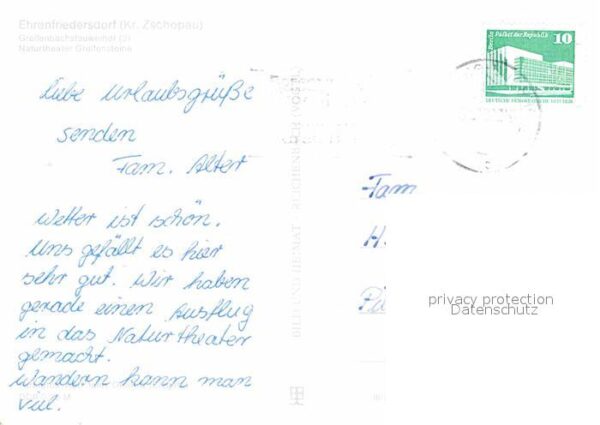 Ehrenfriedersdorf (Kr. Zschopau)
Greifenbachstauweiher (2)
Naturtheater Greifensteine
Liebe Urlaubsgrüße
senden
Fam. Alter
Wetter ist schön.
Uns gefällt es hier
sehr gut. Wir haben
gerade einen Ausflug
in das Naturtheater
gemacht.
Wandern kann man
viel.
BILD UND HEIMAT REICHENBACH (VOGTL)
Berlin Palast der Republik
10
DEUTSCHE DEMOKRATISCHE REPUBLIK
Fam
H.
privacy protection
Datenschutz